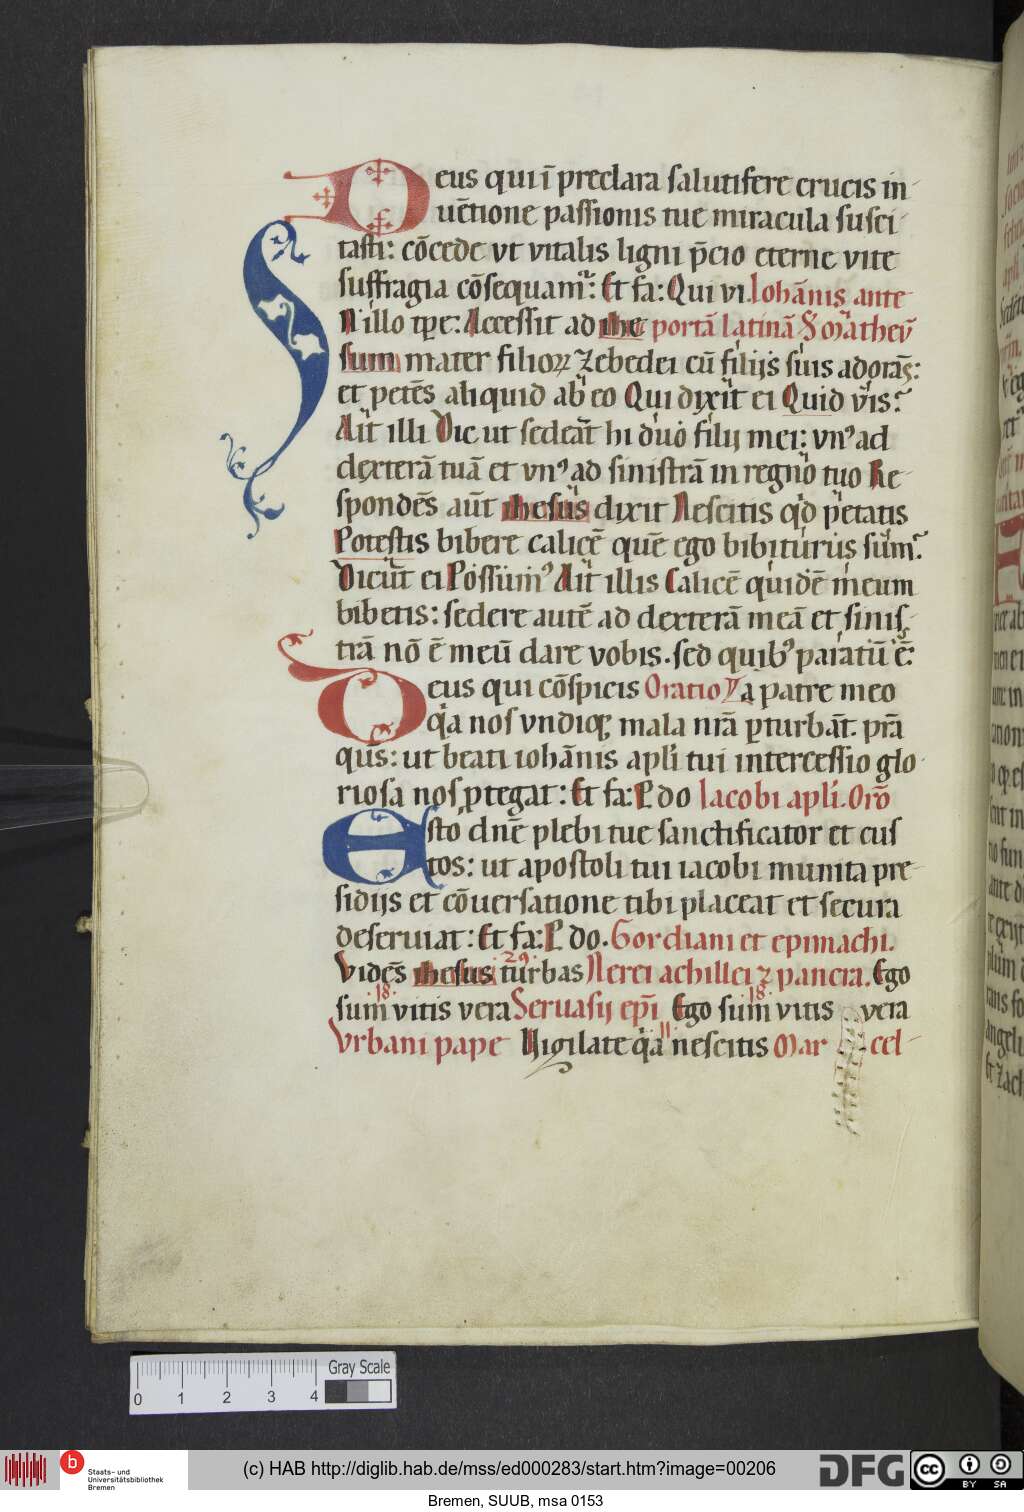 Deus qui ī preclara salutifere crucis in-
uētione passionis tue miracula susci-
tasti: cōcede vt vitalis ligni p̄cio eterne vite
suffragia cōsequamͬ: Et fa: Qui vi. Iohānis ante
In illo tp̄e: Accessit ad ihe portā latinā S Matheū
sum mater filioꝝ zebedei cū filijs suis adorās:
et petēs aliquid ab eo Qui dixit ei Quid vis?
Ait illi Dic ut sedeāt hi duo filij mei: vnꝰ ad
dexterā tuā et vnꝰ ad sinistrā in regno tuo Re-
spondēs aūt ihesus dixit Nescitis qͥd petatis
Potestis bibere calicē quē ego bibiturus sum?
Dicūt ei Possumꝰ Ait illis Calicē quidē meum
bibetis: sedere autē ad dexterā meā et sinis-
trā nō ē meū dare vobis. sed quibꝰ paratū ē
Deus qui cōspicis Oratio a patre meo
qͥa nos vndiqꝫ mala nr̄a ꝑturbāt. pr̄a
qus̄: ut beati iohānis apl̄i tui intercessio glo-
riosa nos ꝓtegat: Et fa: P do Iacobi apl̄i. Orō
Esto dnē plebi tue sanctificator et cus
tos: ut apostoli tui iacobi munita pre-
sidijs et cōuersatione tibi placeat et secura
deseruiat: Et fa: P do. Gordiani et epimachi.
Vidēs ihesus turbas Nerei achillei ⁊ pancra. Ego
29.
sum vitis vera Seruasij ep̄i Ego sum vitis vera
.18. .18.
Vrbani pape Uigilate qͥa nescitis Mar cel-
Gray Scale
0 1 2 3 4
b
Staats- und
Universitätsbibliothek
Bremen
(c) HAB http://diglib.hab.de/mss/ed000283/start.htm?image=00206
DFG
cc BY SA
Bremen, SUUB, msa 0153